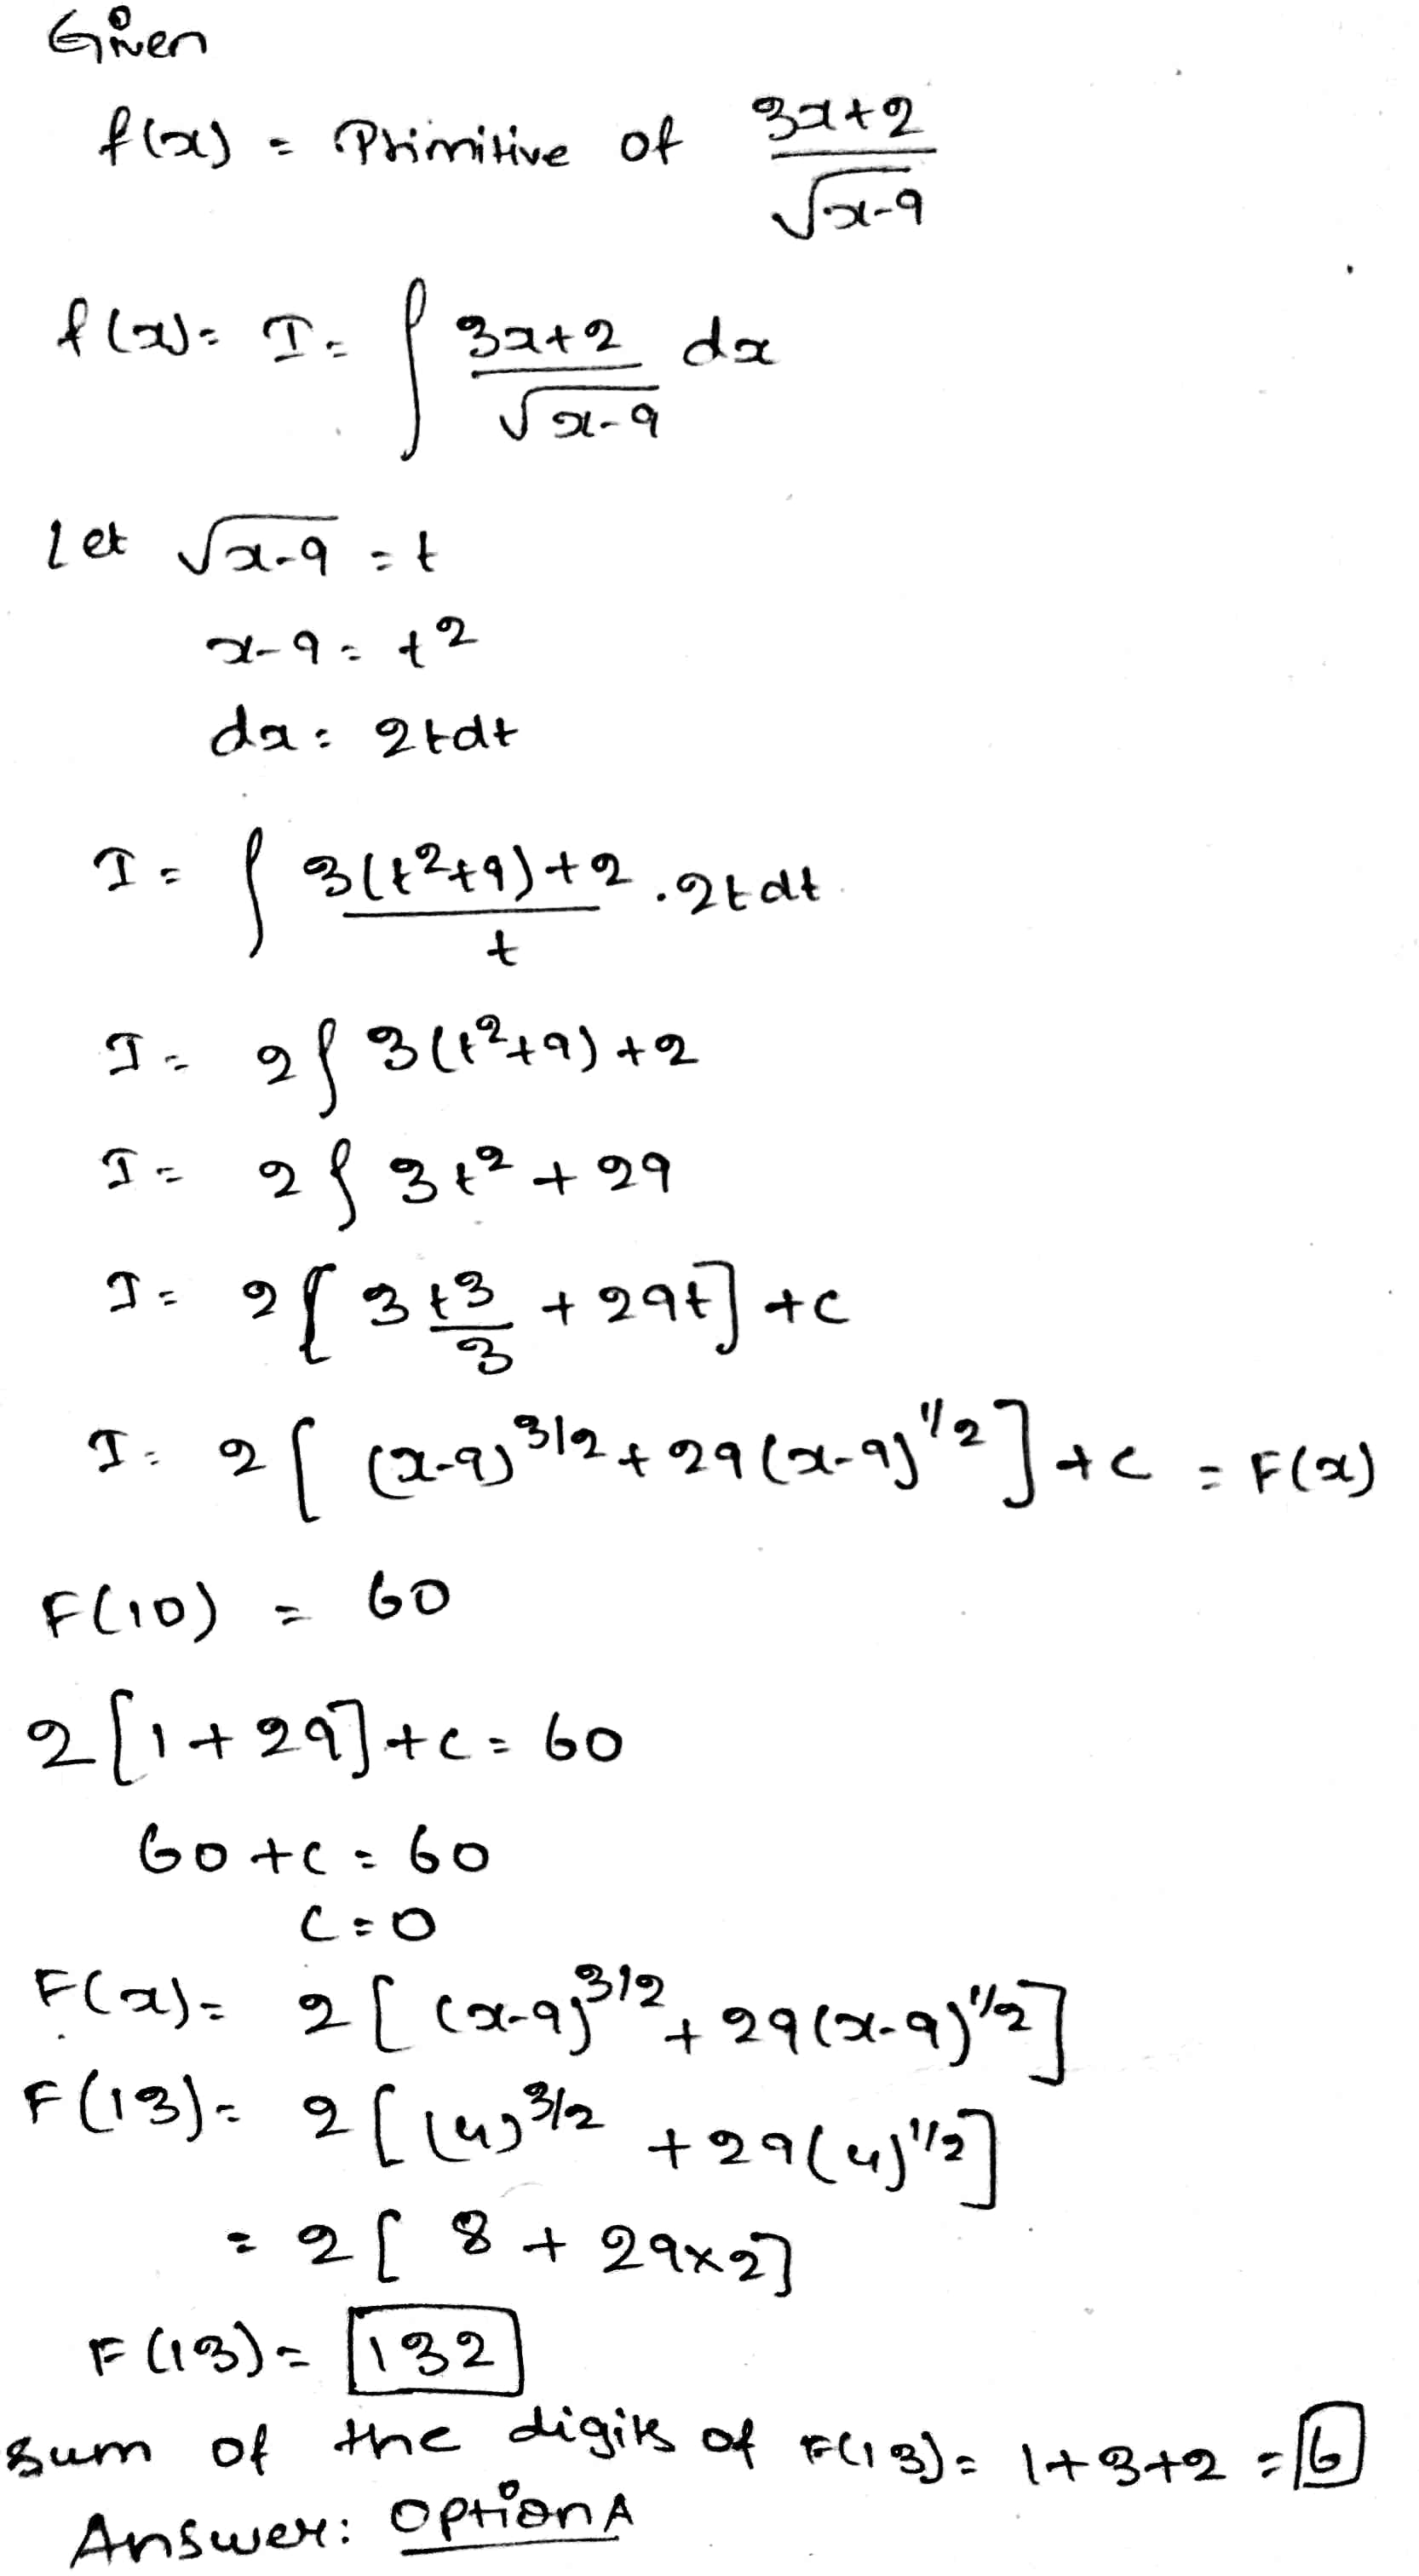 Given
f(x) = Primitive of (3x+2)/√(x-9)
f(x) = I = ∫ (3x+2)/√(x-9) dx
let √(x-9) = t
x-9 = t²
dx = 2tdt
I = ∫ (3(t²+9)+2)/t . 2tdt
I = 2∫ 3(t²+9)+2
I = 2∫ 3t²+29
I = 2[3 t³/3 + 29t] +c
I = 2[(x-9)^3/2 + 29(x-9)^1/2] +c = F(x)
F(10) = 60
2[1+29]+c = 60
60+c = 60
c=0
F(x) = 2[(x-9)^3/2 + 29(x-9)^1/2]
F(13) = 2[(4)^3/2 + 29(4)^1/2]
= 2[8 + 29×2]
F(13) = 132
sum of the digits of F(13) = 1+3+2 = 6
Answer: Option A